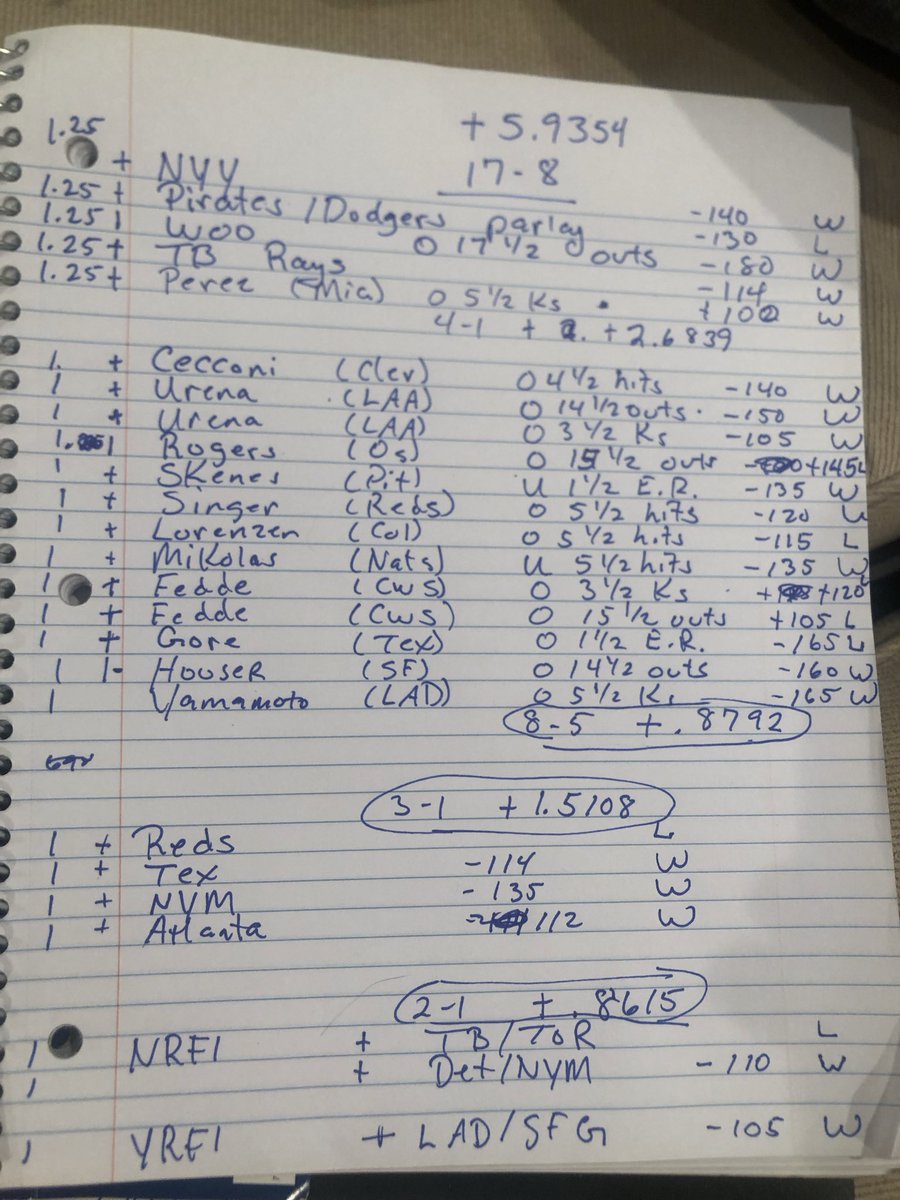 + 5.9354
17-8
1.25 + NYY -140 W
1.25 + Pirates / Dodgers parlay -130 L
1.25 | Woo O 17 1/2 outs -180 W
1.25 + TB Rays -114 W
1.25 + Perez (Mia) O 5 1/2 Ks +100 W
4-1 + + 2.6839
1. + Cecconi (Clev) O 4 1/2 hits -140 W
1 + Urena (LAA) O 14 1/2 outs -150 W
1 + Urena (LAA) O 3 1/2 Ks -105 W
1. | Rogers (Os) O 15 1/2 outs +145 L
1 + Skenes (Pit) U 1 1/2 E.R. -135 W
1 + Singer (Reds) O 5 1/2 hits -120
1 + Lorenzen (Col) O 5 1/2 hits -115 L
1 + Mikolas (Nats) U 5 1/2 hits -135 W
1 + Fedde (CWS) O 3 1/2 Ks +120
1 + Fedde (CWS) O 15 1/2 outs +105 L
1 + Gore (Tex) O 1 1/2 E.R. -165 L
1 |- Houser (SF) O 14 1/2 outs -160 W
1 Yamamoto (LAD) O 5 1/2 Ks -165 W
8-5 + .8792
3-1 + 1.5108
1 + Reds L
1 + Tex -114 W
1 + NYM -135 W
1 + Atlanta 112 W
2-1 + .8615
1 NRFI + TB/TOR L
1 + Det/NYM -110 W
1 YRFI + LAD/SFG -105 W